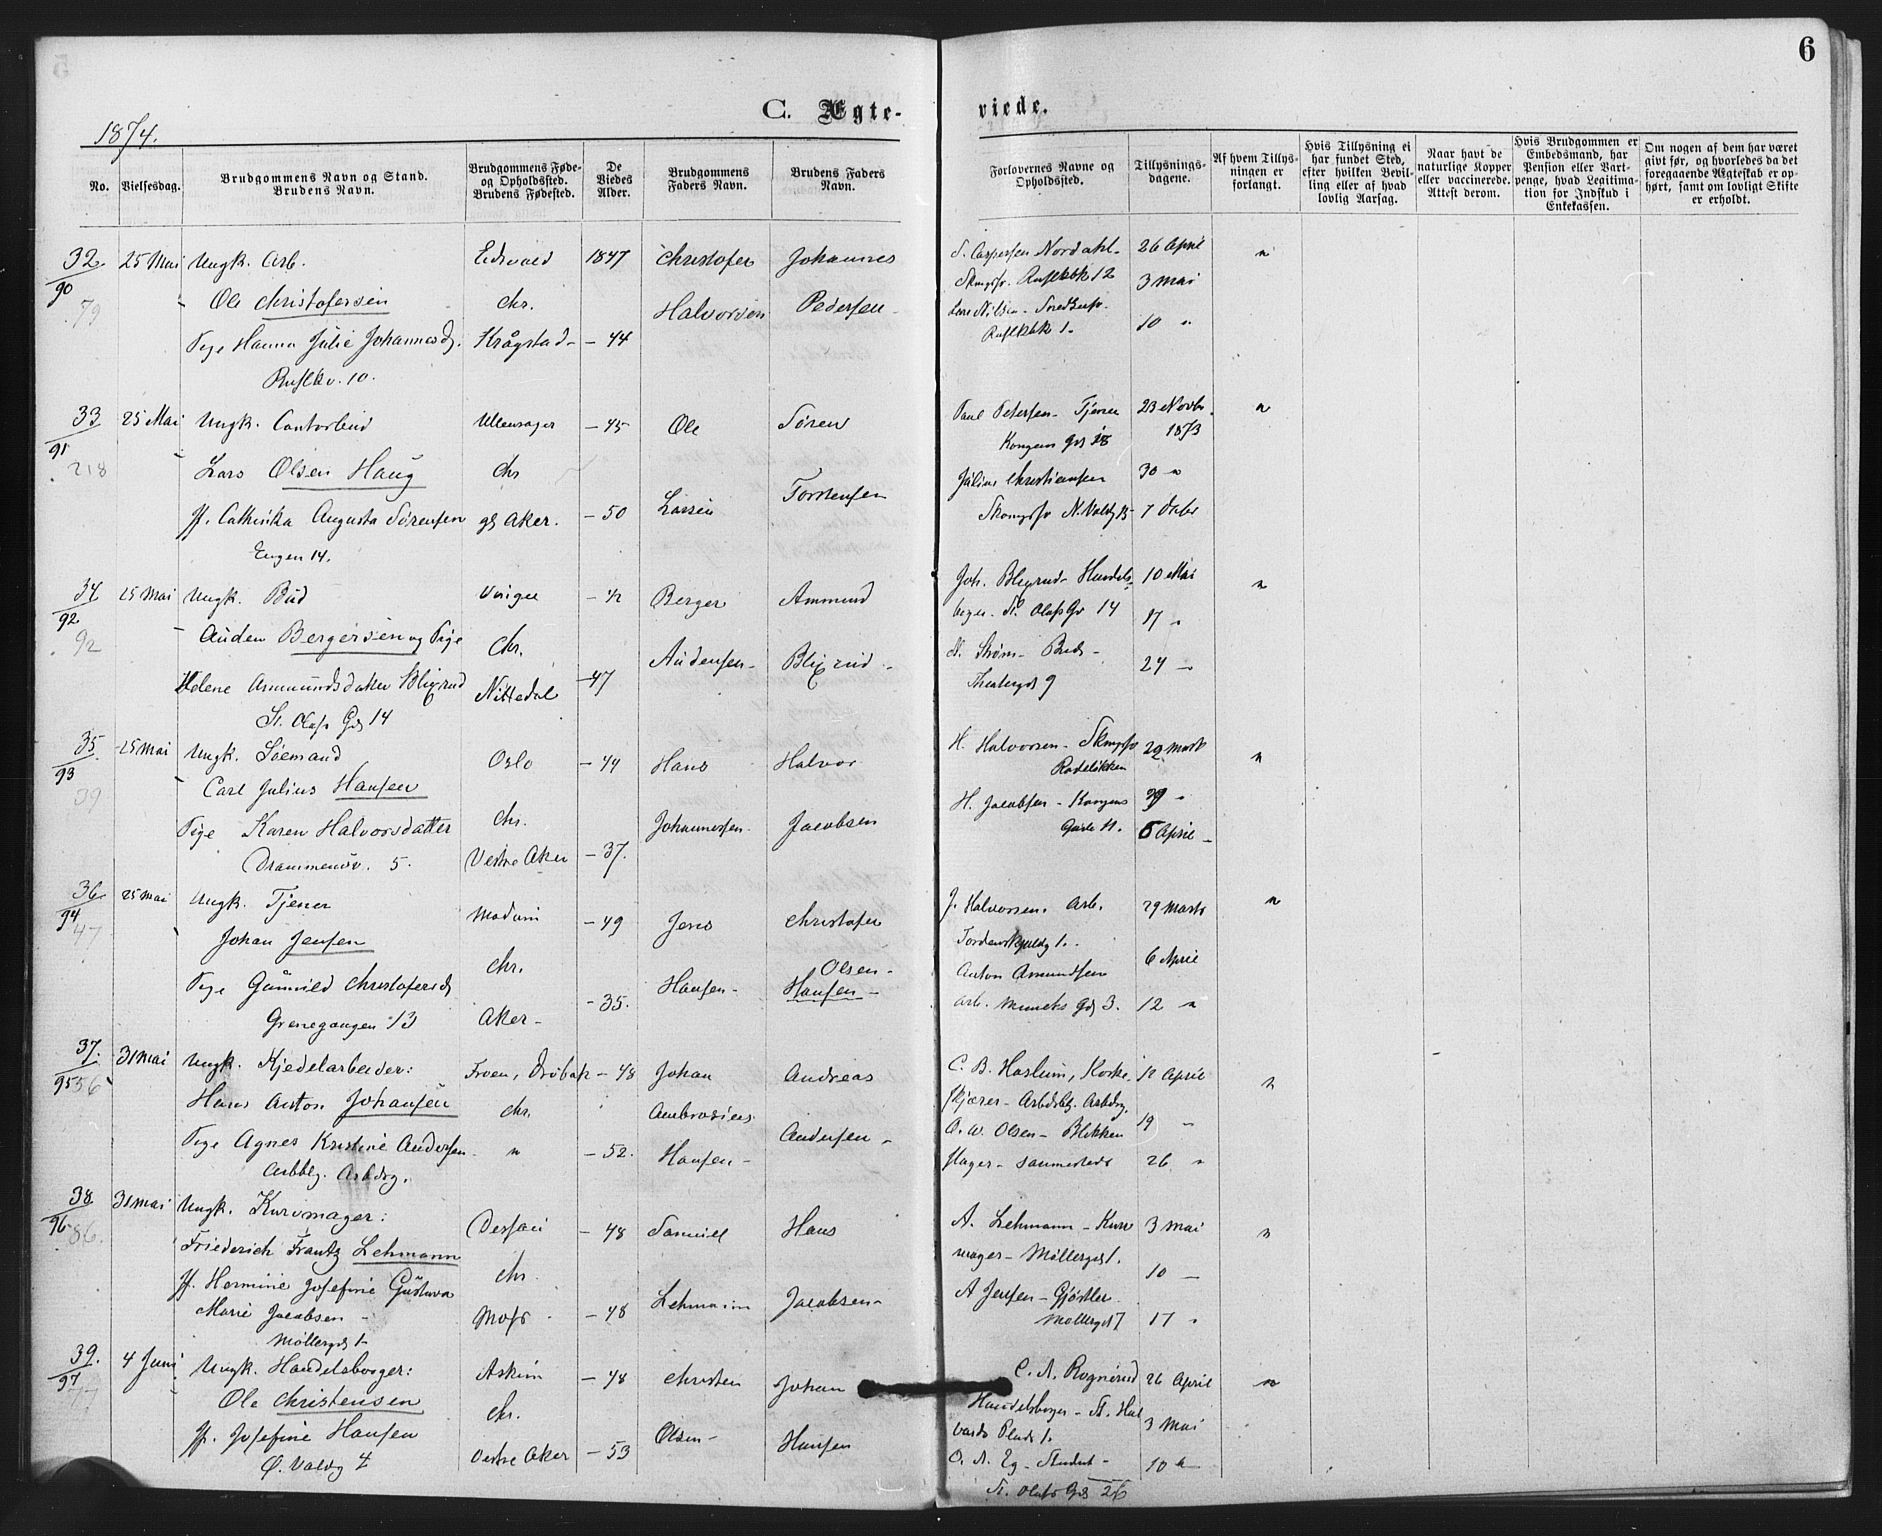 6
C. Ægte-
viede.
1874.
No.
Vielsesdag.
Brudgommens Navn og Stand.
Brudens Navn.
Brudgommens Føde-
og Opholdssted.
Brudens Fødested.
De
Viedes
Alder.
Brudgommens
Faders Navn.
Brudens Faders
Navn.
Forlovernes Navne og
Opholdssted.
Tillysnings-
dagene.
Af hvem Tillys-
ningen er
forlangt.
Hvis Tillysning ei
har fundet Sted,
efter hvilken Bevil-
ling eller af hvad
lovlig Aarsag.
Naar havt de
naturlige Kopper
eller vaccinerede.
Attest derom.
Hvis Brudgommen er
Embedsmand, har
Pension eller Vart-
penge, hvad Legitima-
tion for Indskud i
Enkekassen.
Om nogen af dem har været
givt før, og hvorledes da det
foregaaende Ægteskab er op-
hørt, samt om lovligt Skifte
er erholdt.
32 25 Mai Ungk. Arb. Edsvold 1847 Christofer Johannes
90 Ole Christofersen Chr. Halvorsen Pedersen
79
Pige Hanna Julie Johannesdr. Krågstad - 44
10.
S. Caspersen Nordahl 26 April n
12 3 Mai
Lars Nilsen - Snedkersv.
1. 10 "
33 25 Mai Ungk. Cantorbud Ullensager - 45 Ole Søren
91
218 Lars Olsen Haug Chr Larsen Torstensen
Jf. Cathinka Augusta Sørensen Aker. - 50
Engen 14.
Paul Petersen - Tjener 23 Novbr. n
Kongens Gd 18 1873
Julius Christiansen 30 "
7 Dcbr
34 25 Mai Ungk. Bud Vinger Berger Ammund
92
92 Auden Bergersen og Pige Chr. Audensen - Blixrud
Helene Ammundsdatter Blixrud Nittedal - 47
St. Olafs Gd 14
Joh. Blixrud - Handels- 10 Mai n
St. Olafs Gd 14 17 "
Strøm - Bud - 24 "
Theatergd 9
35. 25 Mai Ungk. Søemand Oslo - 44 Hans Halvor
93
39 Carl Julius Hansen Chr. Johannessen Jacobsen
Pige Karen Halvorsdatter Vestre Aker - 37.
Drammensv. 5.
H. Halvorsen - 29 Marts n
Rodeløkken
H. Jacobsen - Kongens
5 April
36 25 Mai Ungk. Tjener Modum - 49 Jens Christofer
94
47 Johan Jensen Chr. Hansen - Olsen -
Hansen -
Pige Gunnild Christofersd Aker - - 35.
Grønnegangen 13
J. Halvorsen. Arb. 29 Marts n
Tordenskjoldg 1. 6 April
Anton Amundsen
Arb. Muncks Gd 3. 12 "
37. 31 Mai Ungk. Kjedelarbeider: Froen, Drøbak - 48 Johan Andreas
95 56 Hans Anton Johansen Chr. Ambrosius Andersen -
Pige Agnes Kristine Andersen " - 52. Hansen -
Arbblg. Arbdrg.
C. B. Haslum, Korke- 12 April n
skjærer - Arbdsblg. Arbdrg.
O. W. Olsen - Blikken 19 "
slager - 26 "
38 31 Mai Ungk. Kurvmager: Dessau - 48 Samuel Hans
96 86. Friederich Frantz Lehmann Chr. Lehmann Jacobsen -
Jf. Hermine Josefine Gustava Moss - 48
Marie Jacobsen -
Møllergd 1
A. Lehmann - Kurv 3 Mai n
mager - Møllergd 1. 10 -
A Jensen - Gjørtler
Møllergd 7 17 "
39. 4 Juni Ungk. Handelsborger: Askim - 48 Christen Johan
97
77 Ole Christensen Chr. Olsen - Hansen
Jf. Josefine Hansen Vestre Aker - 53
Ø. Voldg 4
C. A. Rognerud 26 April n
Handelsborger - St. Hal
vards Plads 1. 3 Mai
O. A. Eg - Student - 10 "
St. Olafs Gd 26